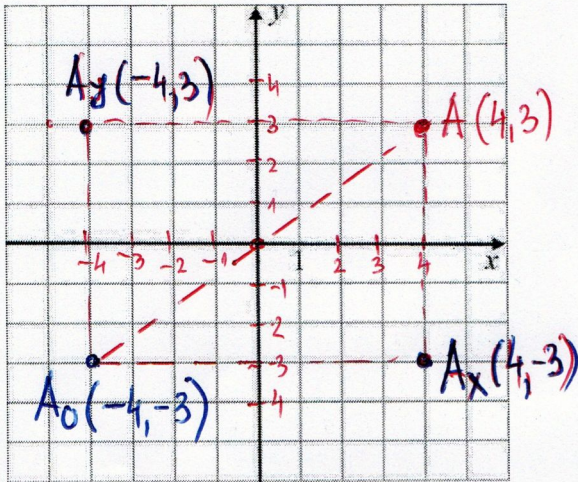 y
Ay(-4,3)
4
3
A(4,3)
2
1
-4 -3 -2 -1 1 2 3 4 x
-1
2
-3
Ax(4,-3)
A0(-4,-3)
4